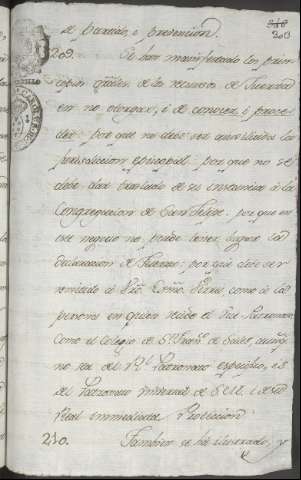 303
de pasion, ó prevencion.
209. Se han manifestado los prin-
cipios de los recursos de fuerza
en no otorgar, i de conocer, i proce-
der: por que no debe ser auxiliada la
jurisdiccion episcopal: por que no se
debe dar traslado de su instancia á la
Congregacion de San Felipe: por que en
ese negocio no puede tener lugar la
declaracion de fuerza: por que debe ser
remitido á como á la
persona en quien recide el Patronato
como el Colegio de Sn. Franco. de Sales, aunqe.
no sea del Rl. Patronato especifico, es
del Patronato universal de S.M. i de su
Real immediata Proteccion.
210. Tambien se ha ilustrado, y